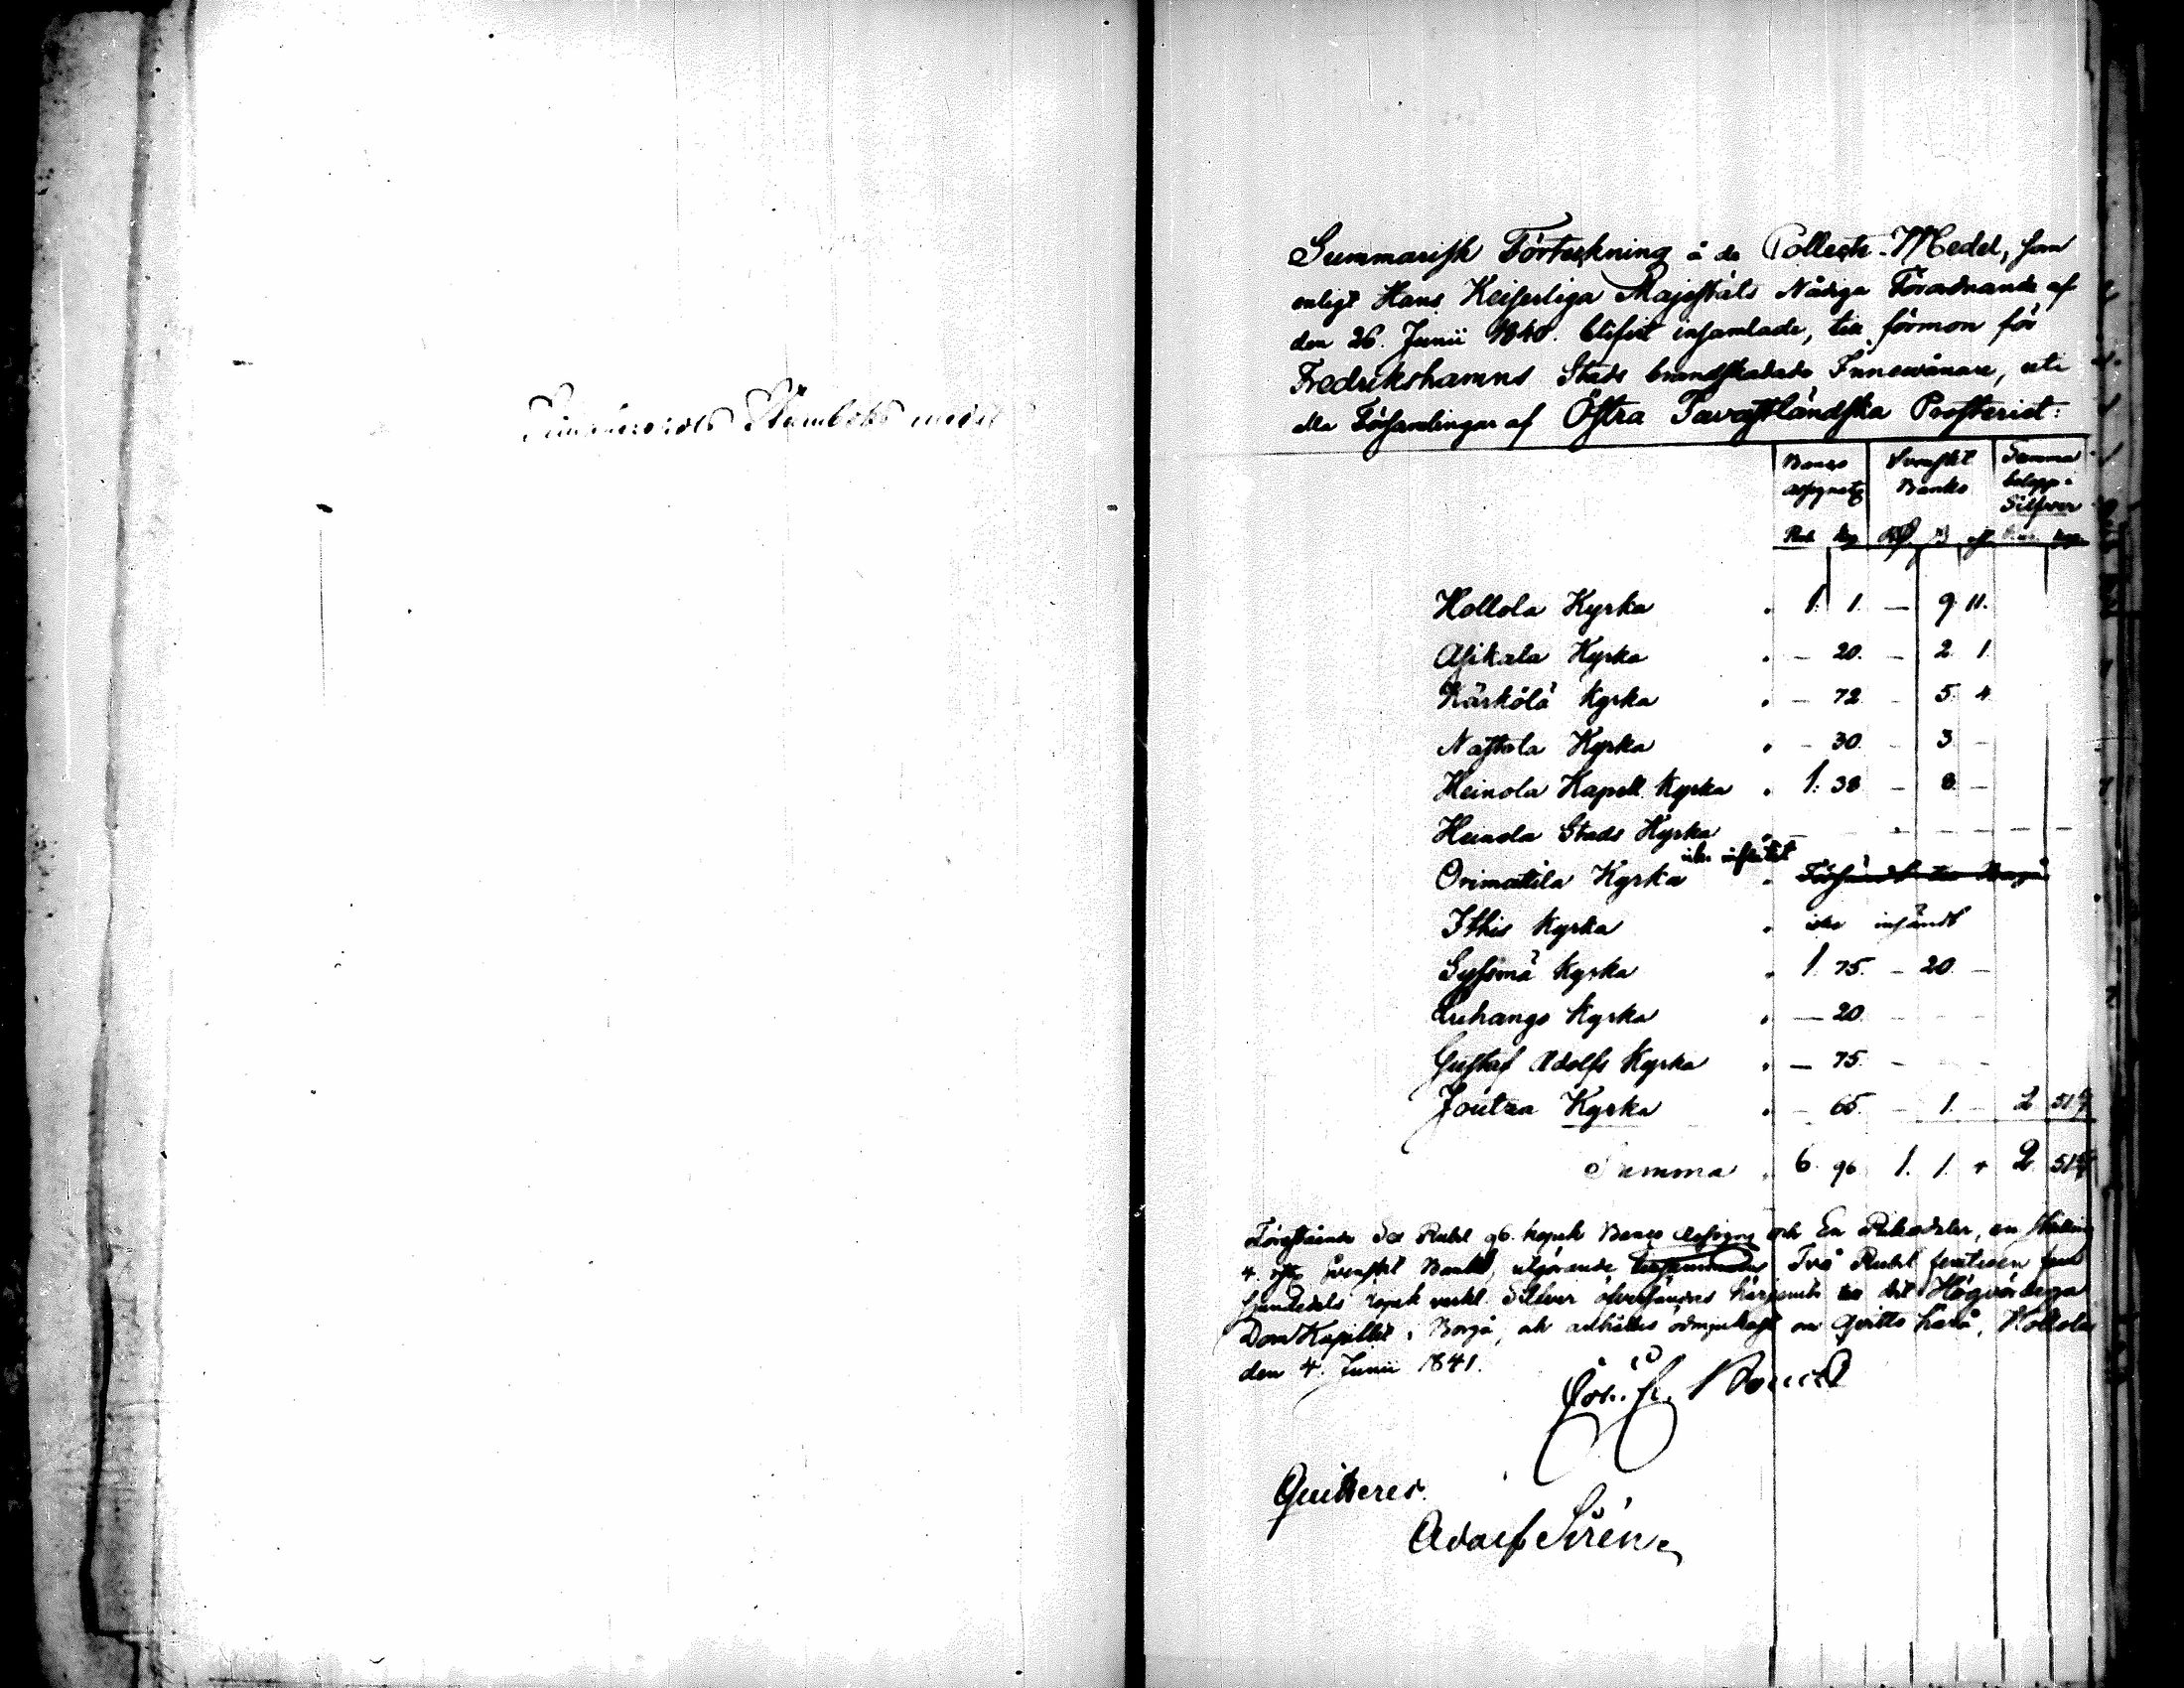 Summarisk Förteckning å de Collecte-Medel, som
enligt Hans Keiserliga Majestäts Nådiga Förordnande af
den 26. Junii 1840. blifvit insamlade, till förmon för
Fredrikshamns Stads brandskadade Innewånare, uti
alla Församlingar af Östra Tavastländska Prosteriet:
Banco Svenskt Summa
Assignat: Banko belopp i
Silfver
Rub. Kop. RD. ß rst. Rub. Kop.
Hollola Kyrka " 1. 1. — 9. 11.
Asikala Kyrka " — 20. — 2. 1.
Kärkölä Kyrka " — 72. — 5. 4.
Nastola Kyrka " — 30. — 3. —
Heinola Kapell Kyrka " 1. 38. — 8. —
Heinola Stads Kyrka " — — — — — —
icke influtit
Orimattila Kyrka " Försändt till Borgå
Itthis Kyrka " icke insändt
Sysmä Kyrka " 1. 75. — 20. —
Luhango Kyrka " — 20. — — —
Gustaf Adolfs Kyrka " — 75. — — —
Joutza Kyrka " — 65. — 1. — 2 51
Summa " 6. 96. 1. 1. 4 2. 51
Förestående Sex Rubel 96. kopek Banco Assigna: och En Riksdaler, en skilling
4. rst. Svenskt Banko, utgörande tillsammans Två Rubel femtioen
kopek verkl. Silfver öfversändes härjemte till det Högvördiga
DomKapitlet i Borgå, och anhålles ödmjukast om qvitto härå, Hollola
den 4. Junii 1841.
Quitteres.
Adolf Sirén